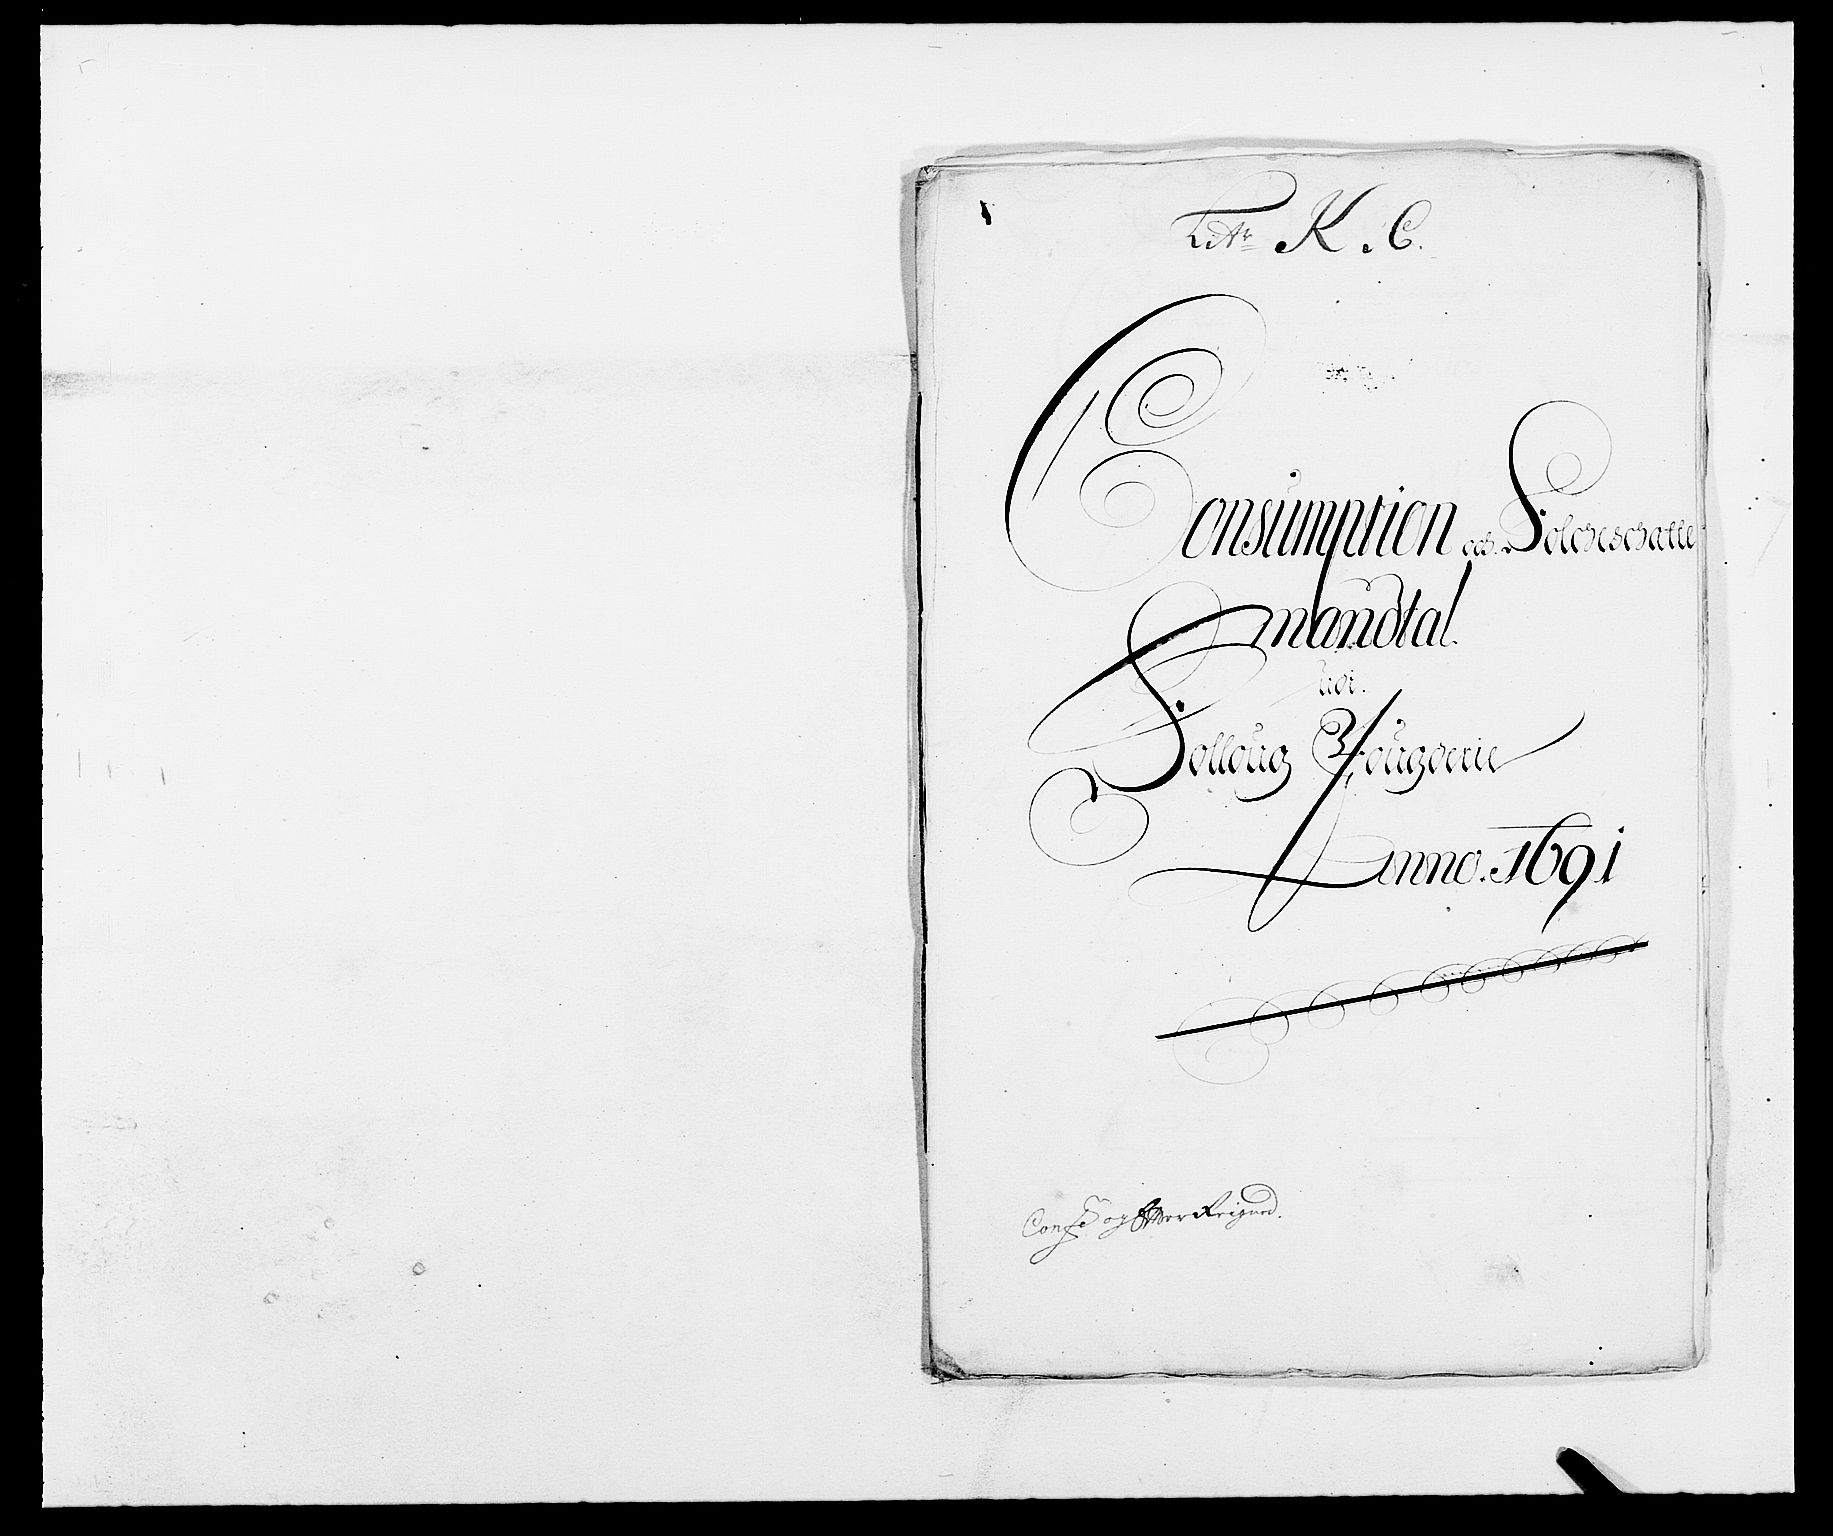 Litr K. C.
Consumption och Folcheschatte
mandtal
udi
Folloug Fougderie
Anno. 1691
Conf: og Efter Reigned.